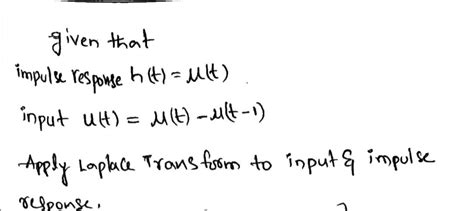 given that
impulse response h(t) = u(t)
input u(t) = u(t) - u(t-1)
Apply Laplace Transform to input & impulse
response.